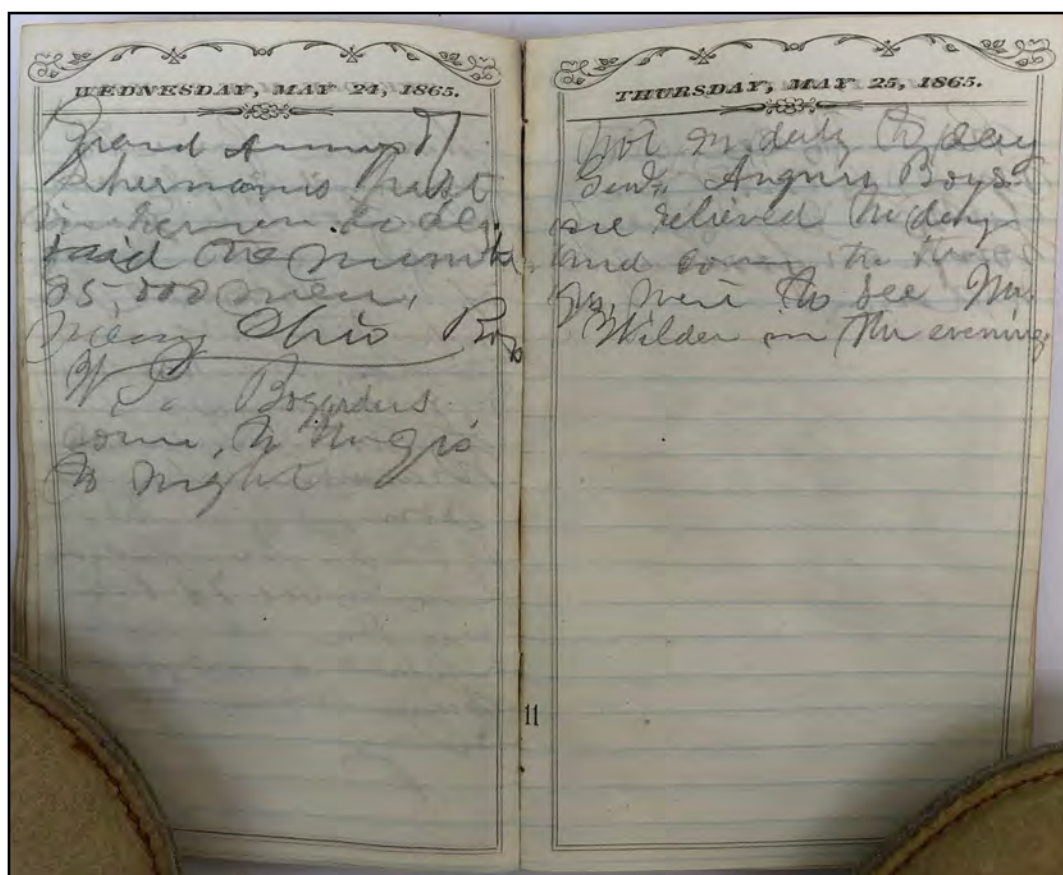 WEDNESDAY, MAY 24, 1865.
Grand Army of
Shermans past
in review to day
said to number
85,000 men,
many Ohio Boys
W. Bogardus
come, to
to night
THURSDAY, MAY 25, 1865.
Not on duty to day
Genl. Boys
are relieved to day
and the
went to see Mr.
Wilder in the evening
11